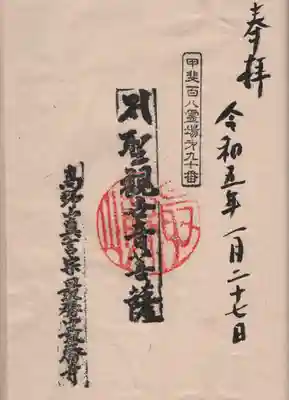 奉拝
令和五年一月二十七日
甲斐百八霊場才九十番
聖観世音菩薩
高野山真言宗最勝寺